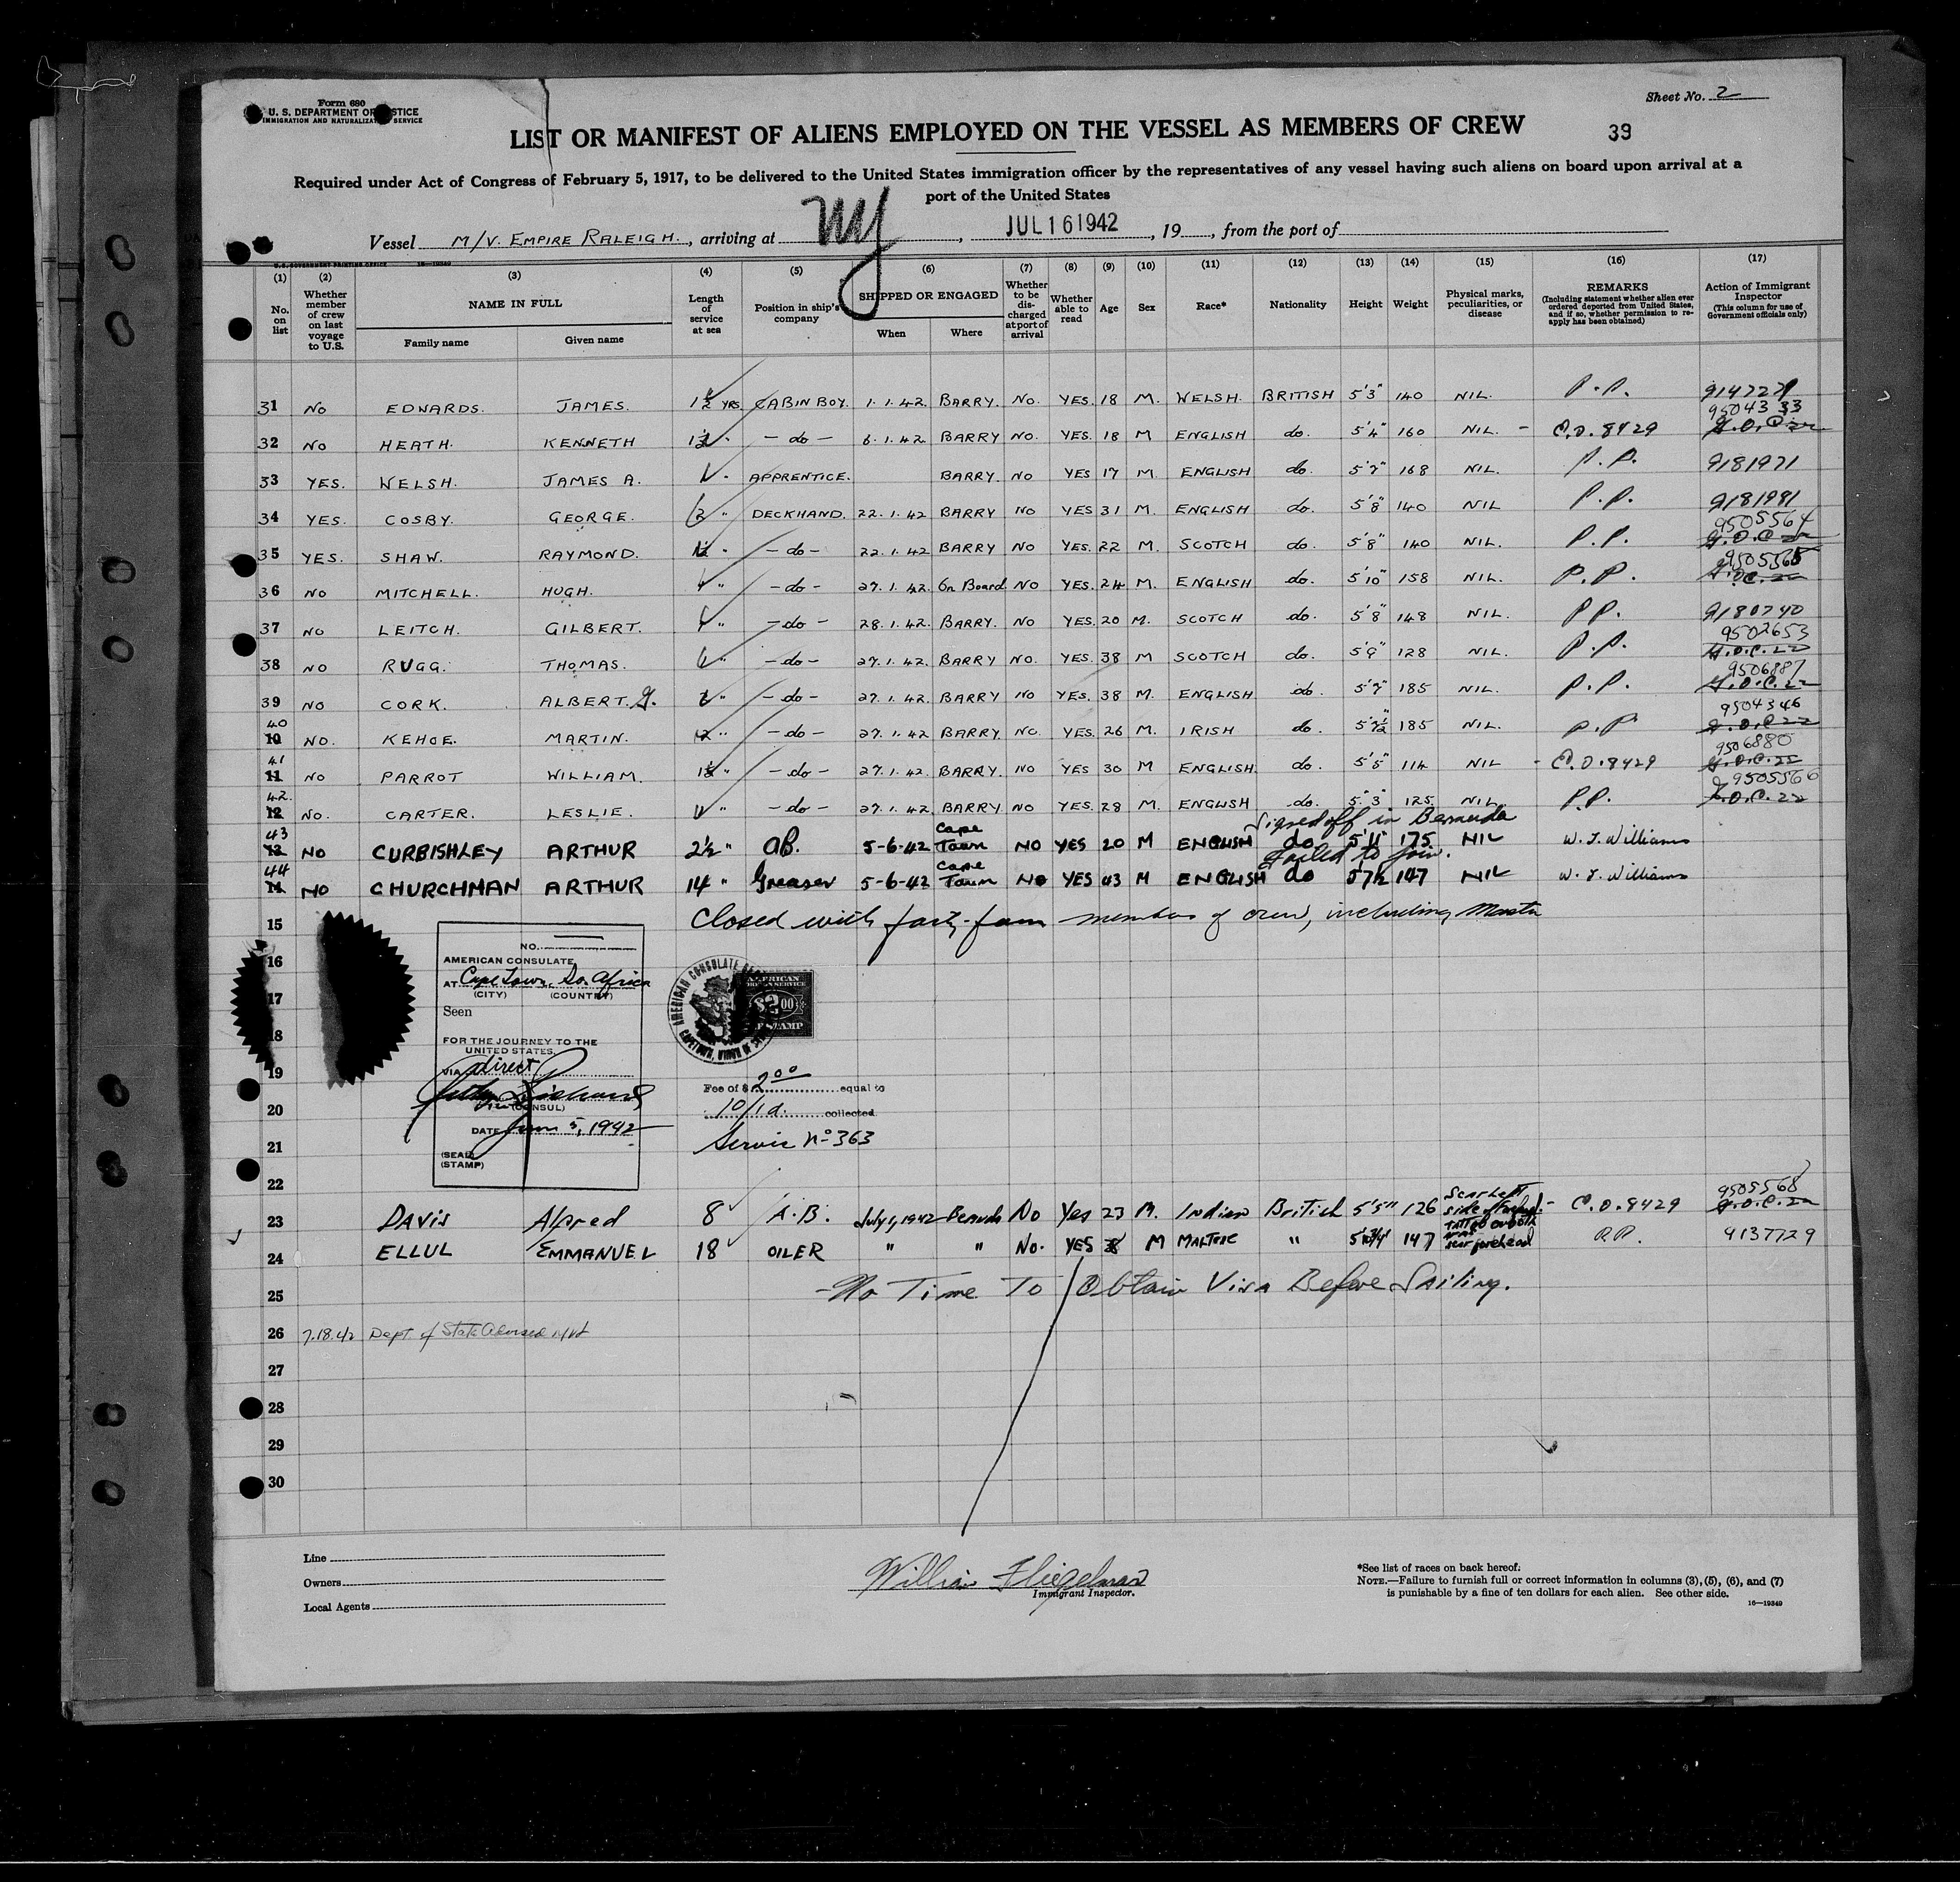 Form 680
U. S. DEPARTMENT OF JUSTICE
IMMIGRATION AND NATURALIZATION SERVICE
Sheet No. 2
LIST OR MANIFEST OF ALIENS EMPLOYED ON THE VESSEL AS MEMBERS OF CREW
39
Required under Act of Congress of February 5, 1917, to be delivered to the United States immigration officer by the representatives of any vessel having such aliens on board upon arrival at a
port of the United States
Vessel M/V. EMPIRE RALEIGH., arriving at NY, JUL 16 1942, 19, from the port of
U. S. GOVERNMENT PRINTING OFFICE 16—19349
(1) (2) (3) (4) (5) (6) (7) (8) (9) (10) (11) (12) (13) (14) (15) (16) (17)
No. on list
Whether member of crew on last voyage to U.S.
NAME IN FULL
Family name Given name
Length of service at sea
Position in ship's company
SHIPPED OR ENGAGED
When Where
Whether to be discharged at port of arrival
Whether able to read
Age
Sex
Race*
Nationality
Height
Weight
Physical marks, peculiarities, or disease
REMARKS
(Including statement whether alien ever ordered deported from United States, and if so, whether permission to re-apply has been obtained)
Action of Immigrant Inspector
(This column for use of Government officials only)
31 NO EDWARDS. JAMES. 1½ YRS CABIN BOY. 1.1.42. BARRY. NO. YES. 18 M. WELSH. BRITISH 5'3" 140 NIL. P.P. 9147229
9504333
32 NO HEATH. KENNETH 1½ " - do - 6.1.42. BARRY NO. YES. 18 M ENGLISH do. 5'4" 160 NIL. - C.D. 8429
33 YES. WELSH. JAMES A. APPRENTICE. BARRY. NO YES 17 M. ENGLISH do. 5'7" 168 NIL. P.P. 9181971
34 YES. COSBY. GEORGE. 2 " DECKHAND. 22.1.42 BARRY NO YES 31 M. ENGLISH do. 5'8" 140 NIL P.P. 9181981
9505564
35 YES. SHAW. RAYMOND. 1½ " - do - 22.1.42 BARRY NO YES. 22 M. SCOTCH do. 5'8" 140 NIL. P.P. G.O.C. 22
9505565
36 NO MITCHELL. HUGH. " - do - 27.1.42. On Board NO YES. 24 M. ENGLISH do. 5'10" 158 NIL. P.P. G.O.C. 22
37 NO LEITCH. GILBERT. " - do - 28.1.42. BARRY. NO YES. 20 M. SCOTCH do. 5'8" 148 NIL. P.P. 9180740
9502653
38 NO RUGG. THOMAS. " - do - 27.1.42. BARRY NO. YES. 38 M SCOTCH do. 5'9" 128 NIL. P.P. G.O.C. 22
9506887
39 NO CORK. ALBERT. G. " - do - 27.1.42 BARRY NO YES. 38 M. ENGLISH do. 5'7" 185 NIL. P.P. G.O.C. 22
9504346
40 10 NO. KEHOE. MARTIN. " - do - 27.1.42 BARRY. NO. YES. 26 M. IRISH do. 5'7½" 185 NIL. P.P. G.O.C. 22
9506880
41 11 NO PARROT WILLIAM. 1½ " - do - 27.1.42. BARRY. NO YES 30 M ENGLISH. do. 5'5" 114 NIL - C.D. 8429 G.O.C. 22
9505566
42. 12 NO. CARTER. LESLIE. " - do - 27.1.42. BARRY NO YES. 28 M. ENGLISH do. 5'3" 125 NIL. P.P. G.O.C. 22
Signed off in Bermuda
43 13 NO CURBISHLEY ARTHUR 2½ " AB. 5-6-42 Cape Town NO YES 20 M ENGLISH do 5'11" 175 NIL W. J. Williams
failed to join.
44 14 NO CHURCHMAN ARTHUR 14 " Greaser 5-6-42 Cape Town NO YES 43 M ENGLISH do 5 7½ 147 NIL W. J. Williams
15 Closed with forty-four members of crew, including Master
16
17
18
19
20
21
22
NO.
AMERICAN CONSULATE
AT Cape Town, So. Africa
(CITY) (COUNTRY)
Seen
FOR THE JOURNEY TO THE
UNITED STATES,
VIA direct
Vice (CONSUL)
DATE June 5, 1942
(SEAL)
(STAMP)
AMERICAN CONSULATE
CAPETOWN, UNION OF
AMERICAN
FOREIGN SERVICE
$2.00
FEE STAMP
Fee of $ 2.00 equal to
10/1d. collected.
Service No 363
9505568
23 DAVIS Alfred 8 A.B. July 1, 1942 Bermuda No Yes 23 M. Indian British 5'5" 126 Scar left side of C.D. 8429 G.O.C. 22
24 ELLUL EMMANUEL 18 OILER " " No. YES M MALTESE " 147 scar forehead P.P. 9137729
25 - No Time To Obtain Visa Before Sailing.
26 7.18.42 Dept. of State Advised
27
28
29
30
Line
Owners
Local Agents
William Fliegelman
Immigrant Inspector.
*See list of races on back hereof.
NOTE.—Failure to furnish full or correct information in columns (3), (5), (6), and (7)
is punishable by a fine of ten dollars for each alien. See other side.
16—19349